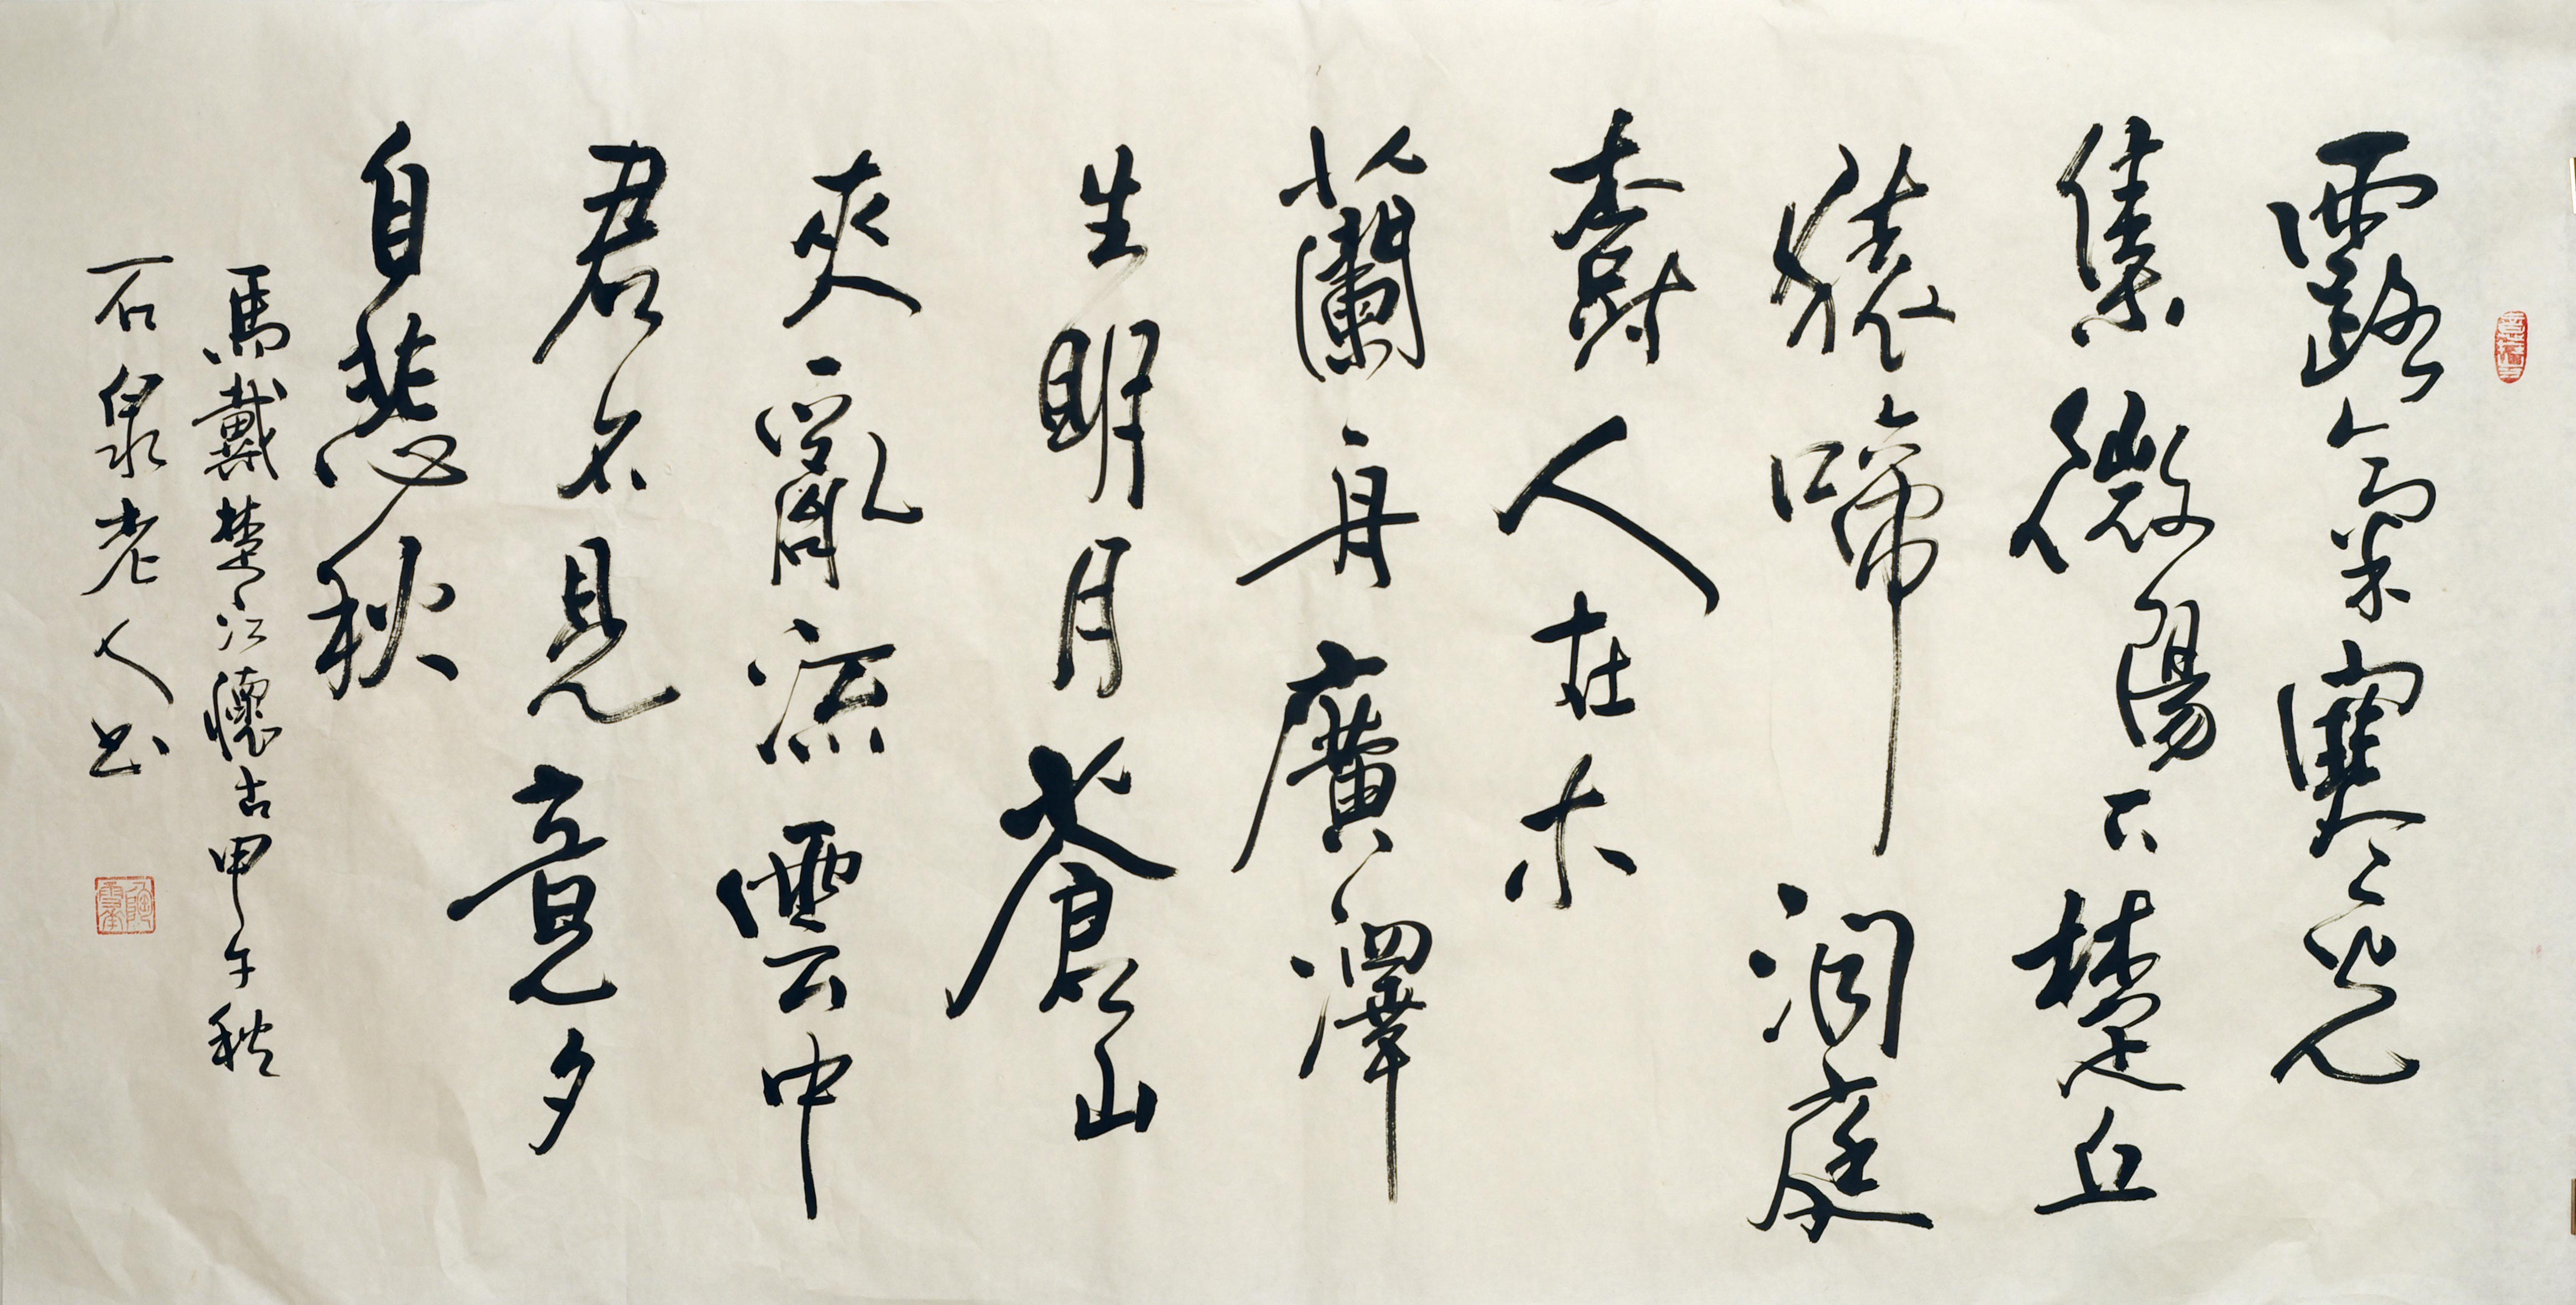 露氣寒光
集微陽下楚丘
猿啼洞庭
樹人在木
蘭舟廣澤
生明月蒼山
夾亂流雲中
君不見竟夕
自悲秋
馬戴楚江懷古甲午秋
石泉老人书